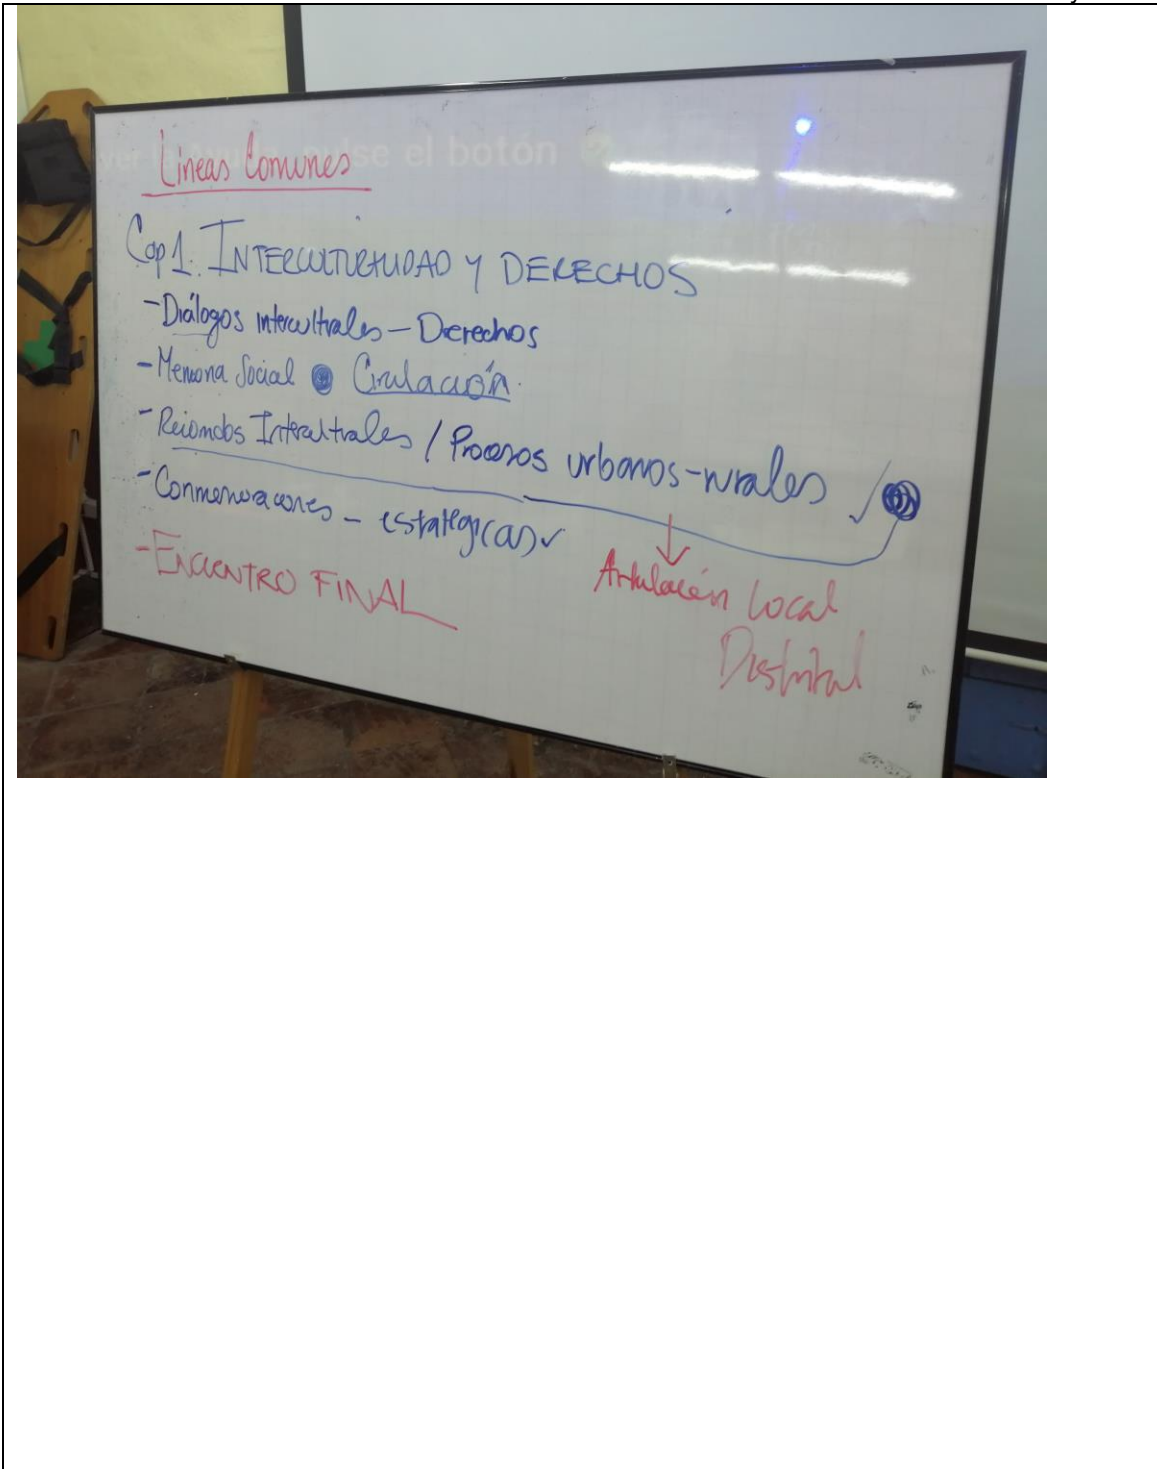 Líneas Comunes
Cap 1. INTERCULTURALIDAD Y DERECHOS
- Diálogos interculturales - Derechos
- Memoria Social Circulación.
- Recorridos Interculturales / Procesos urbanos-rurales ✓
- Conmemoraciones - estratégicas ✓
- ENCUENTRO FINAL
Articulación Local
Distrital
pulse el botón